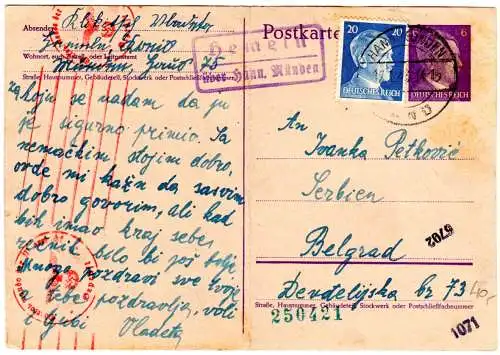 Absender:
Wohnort, auch Zustell- oder Leitpostamt
München, 25
Straße, Hausnummer, Gebäudeteil, Stockwerk oder Postschließfachnummer
koju se nadam da ju
je sigurno primio. Sa
nemačkim stojim dobro,
ovde mi kažu da sasvim
dobro govorim, ali kad
bih imao kraj sebe
rečnik bilo bi još bolje.
Mnogo pozdravi sve tvoje
a tebe pozdravlja, voli
i ljubi Vladeta
Postkarte
Hemeln
über Hann. Münden
20 20
DEUTSCHES REICH
6
DEUTSCHES REICH
HANN
An
Ivanka Petković
Serbien
Belgrad
Dendelijska br 73
Straße, Hausnummer, Gebäudeteil, Stockwerk oder Postschließfachnummer
250421
6702
1071